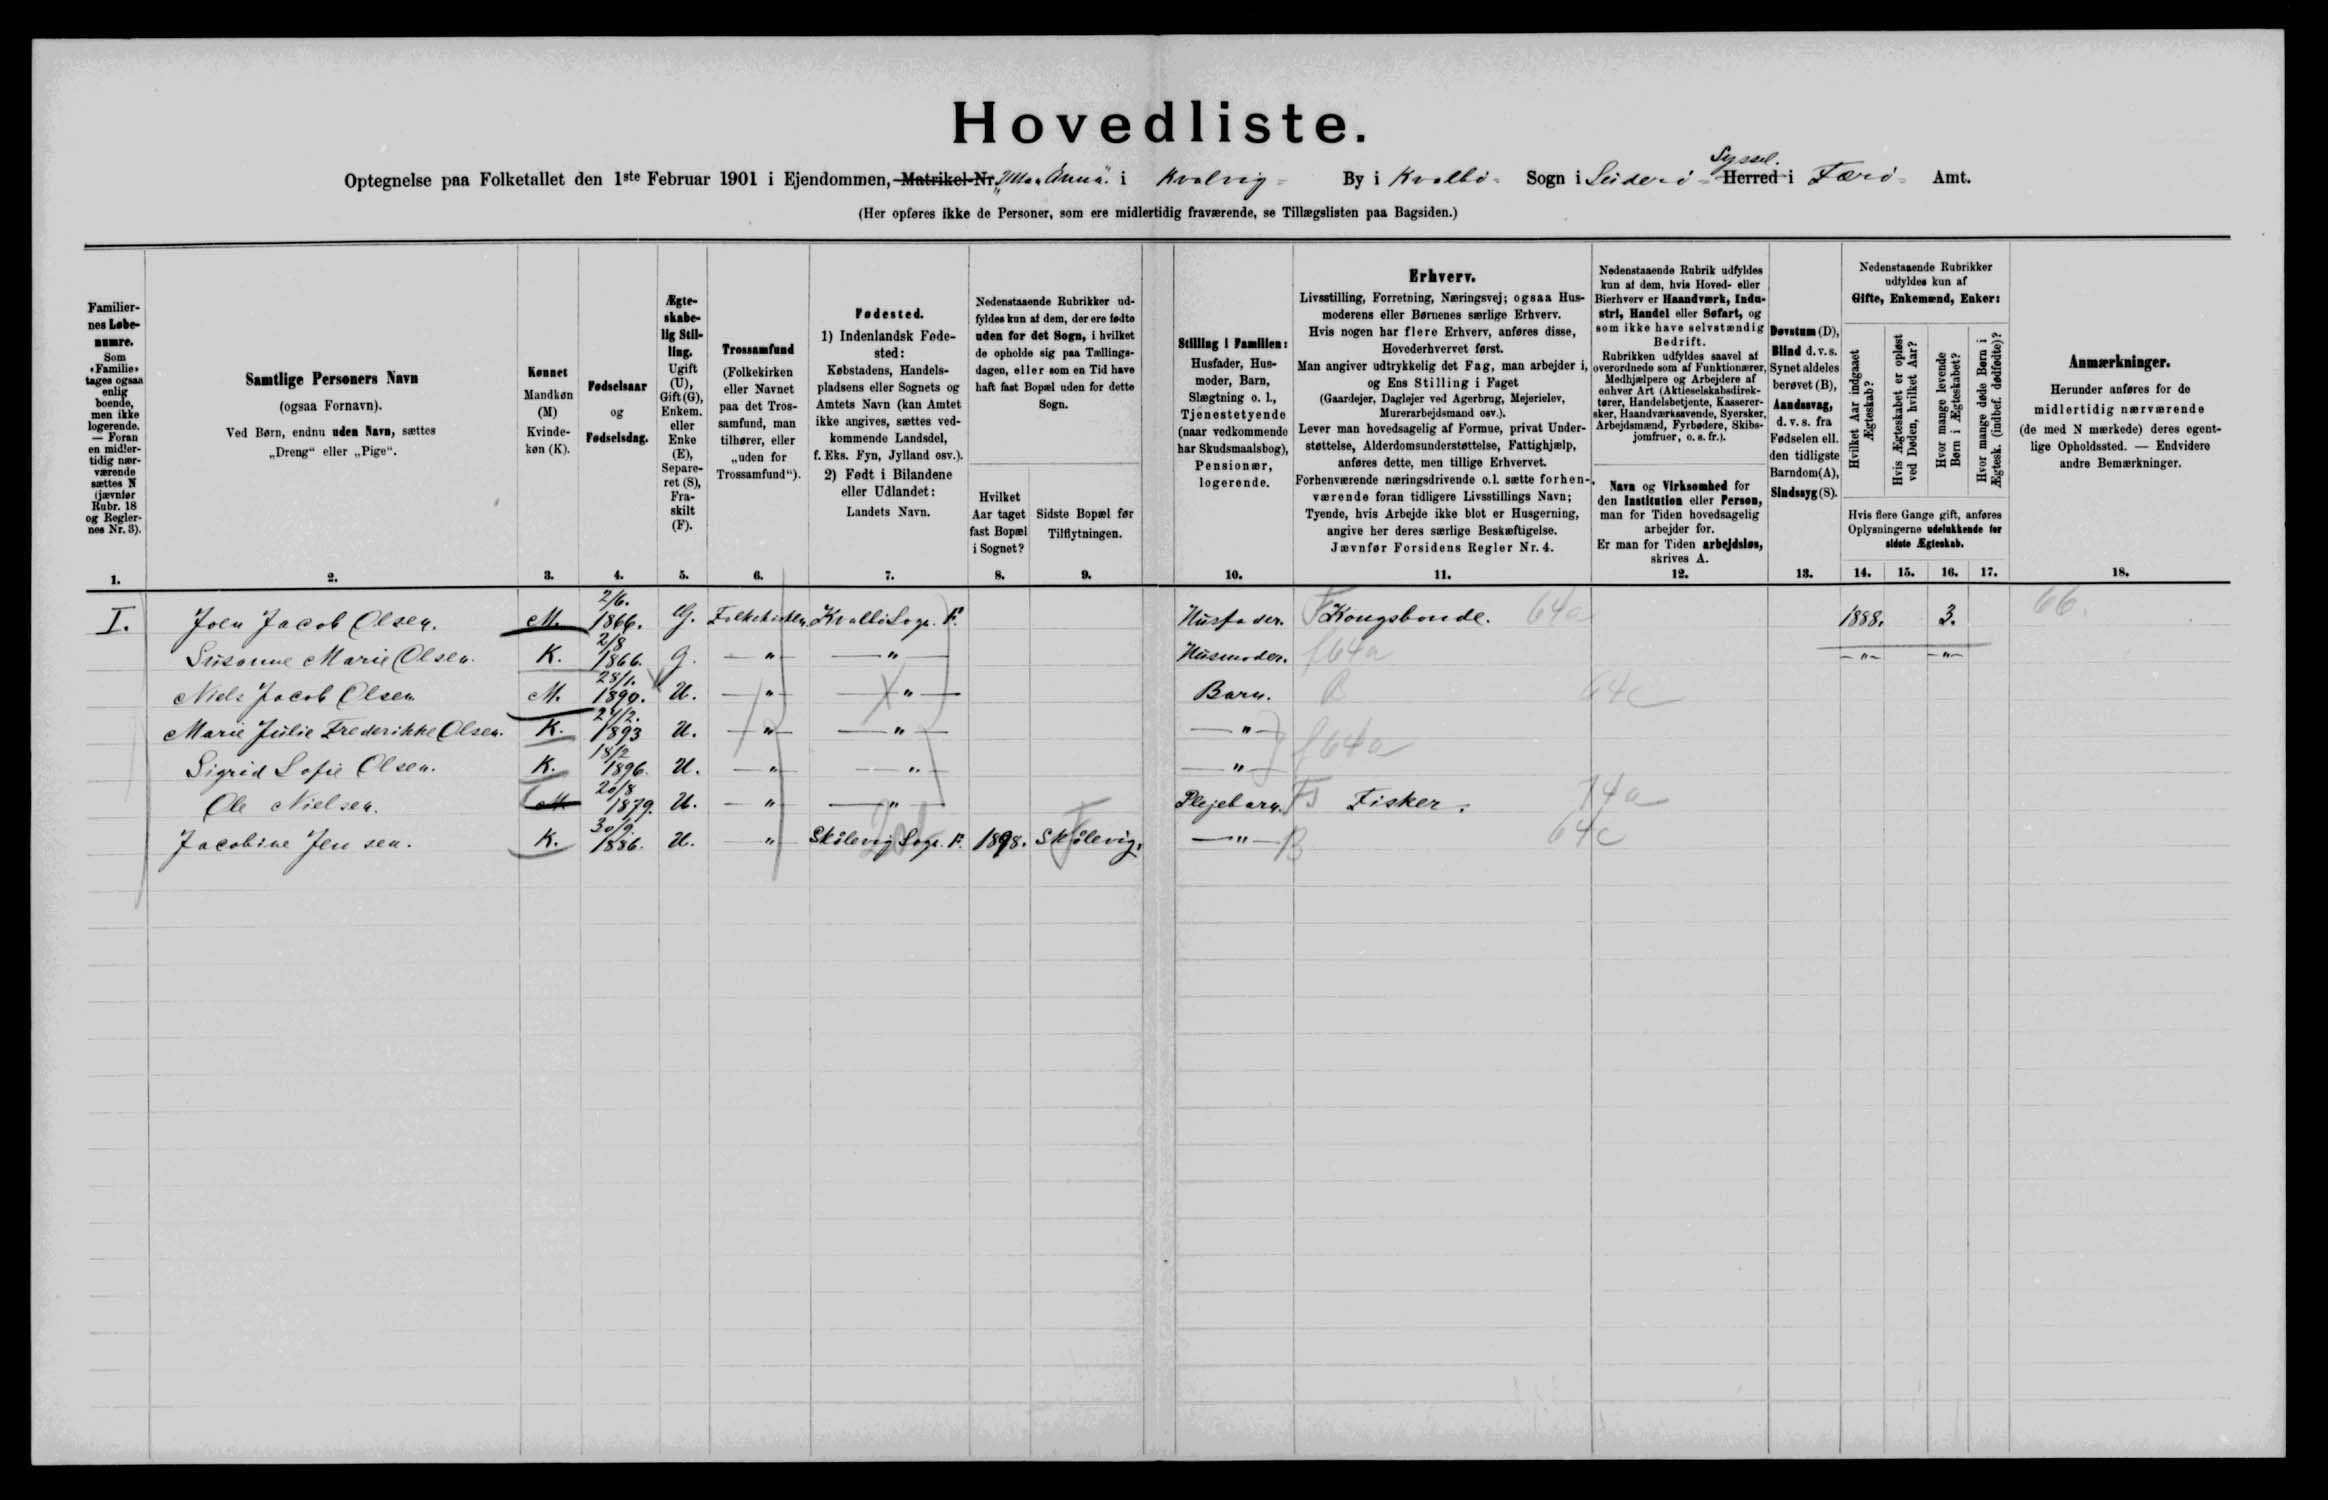 Hovedliste.
Optegnelse paa Folketallet den 1ste Februar 1901 i Ejendommen, Matrikel-Nr. i Kvalvig By i Kvalbø Sogn i Suderø Syssel. Herred i Færø Amt.
(Her opføres ikke de Personer, som ere midlertidig fraværende, se Tillægslisten paa Bagsiden.)
Familiernes Løbenumre.
Som »Familie« tages ogsaa enlig boende, men ikke logerende. — Foran en midlertidig nærværende sættes N (jævnfør Rubr. 18 og Reglernes Nr. 3).
Samtlige Personers Navn
(ogsaa Fornavn).
Ved Børn, endnu uden Navn, sættes
„Dreng“ eller „Pige“.
Kønnet
Mandkøn (M)
Kvindekøn (K).
Fødselsaar
og
Fødselsdag.
Ægteskabelig Stilling.
Ugift (U), Gift (G), Enkem. eller Enke (E), Separeret (S), Fraskilt (F).
Trossamfund
(Folkekirken eller Navnet paa det Trossamfund, man tilhører, eller „uden for Trossamfund“).
Fødested.
1) Indenlandsk Fødested:
Købstadens, Handelspladsens eller Sognets og Amtets Navn (kan Amtet ikke angives, sættes vedkommende Landsdel, f. Eks. Fyn, Jylland osv.).
2) Født i Bilandene eller Udlandet:
Landets Navn.
Nedenstaaende Rubrikker udfyldes kun af dem, der ere fødte uden for det Sogn, i hvilket de opholde sig paa Tællingsdagen, eller som en Tid have haft fast Bopæl uden for dette Sogn.
Hvilket Aar taget fast Bopæl i Sognet?
Sidste Bopæl før Tilflytningen.
Stilling i Familien:
Husfader, Husmoder, Barn, Slægtning o. l., Tjenestetyende (naar vedkommende har Skudsmaalsbog), Pensionær, logerende.
Erhverv.
Livsstilling, Forretning, Næringsvej; ogsaa Husmoderens eller Børnenes særlige Erhverv.
Hvis nogen har flere Erhverv, anføres disse, Hovederhvervet først.
Man angiver udtrykkelig det Fag, man arbejder i, og Ens Stilling i Faget
(Gaardejer, Daglejer ved Agerbrug, Mejerielev, Murerarbejdsmand osv.).
Lever man hovedsagelig af Formue, privat Understøttelse, Alderdomsunderstøttelse, Fattighjælp, anføres dette, men tillige Erhvervet.
Forhenværende næringsdrivende o. l. sætte forhenværende foran tidligere Livsstillings Navn;
Tyende, hvis Arbejde ikke blot er Husgerning, angive her deres særlige Beskæftigelse.
Jævnfør Forsidens Regler Nr. 4.
Nedenstaaende Rubrik udfyldes kun af dem, hvis Hoved- eller Bierhverv er Haandværk, Industri, Handel eller Søfart, og som ikke have selvstændig Bedrift.
Rubrikken udfyldes saavel af overordnede som af Funktionærer, Medhjælpere og Arbejdere af enhver Art (Aktieselskabsdirektører, Handelsbetjente, Kasserersker, Haandværkssvende, Syersker, Arbejdsmænd, Fyrbødere, Skibsjomfruer, o. s. fr.).
Navn og Virksomhed for den Institution eller Person, man for Tiden hovedsagelig arbejder for.
Er man for Tiden arbejdsløs, skrives A.
Døvstum (D),
Blind d. v. s. Synet aldeles berøvet (B),
Aandssvag, d. v. s. fra Fødselen ell. den tidligste Barndom (A),
Sindssyg (S).
Nedenstaaende Rubrikker udfyldes kun af
Gifte, Enkemænd, Enker:
Hvilket Aar indgaaet Ægteskab?
Hvis Ægteskabet er opløst ved Døden, hvilket Aar?
Hvor mange levende Børn i Ægteskabet?
Hvor mange døde Børn i Ægtesk. (indbef. dødfødte)?
Hvis flere Gange gift, anføres Oplysningerne udelukkende for sidste Ægteskab.
Anmærkninger.
Herunder anføres for de midlertidig nærværende (de med N mærkede) deres egentlige Opholdssted. — Endvidere andre Bemærkninger.
1. 2. 3. 4. 5. 6. 7. 8. 9. 10. 11. 12. 13. 14. 15. 16. 17. 18.
I. Joen Jacob Olsen. M. 2/6. 1866. G. Folkekirken Kvalbø Sogn. F. Husfader. F Kongsbonde. 64a 1888. 3. 66.
Susanne Marie Olsen. K. 2/8 1866. G. — " — — " — Husmoder. f64a — " — — " —
Niels Jacob Olsen M. 28/1. 1890. U. — " — — " — Barn. B 64c
Marie Julie Frederikke Olsen. K. 21/2. 1893 U. — " — — " — — " — f64a
Sigrid Sofie Olsen. K. 18/2 1896. U. — " — — " — — " —
Ole Nielsen. M 20/8 1879. U. — " — — " — Plejebarn. Fisker. 74a
Jacobine Jensen. K. 30/9. 1886. U. — " Skålevig Sogn. F. 1898. Skålevig. — " — B 64c